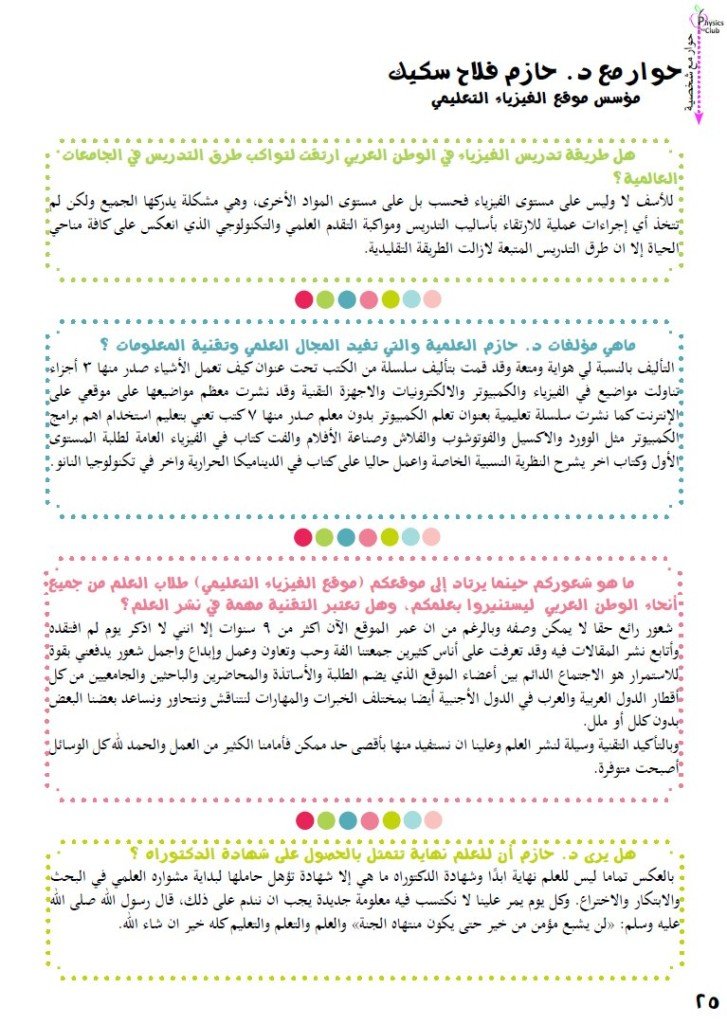 Physics
Club
حوار مع شخصية
حوار مع د. حازم فلاح سكيك
مؤسس موقع الفيزياء التعليمي
هل طريقة تدريس الفيزياء في الوطن العربي ارتقت لتواكب طرق التدريس في الجامعات
العالمية؟
للأسف لا وليس على مستوى الفيزياء فحسب بل على مستوى المواد الأخرى، وهي مشكلة يدركها الجميع ولكن لم
تتخذ أي إجراءات عملية للارتقاء بأساليب التدريس ومواكبة التقدم العلمي والتكنولوجي الذي انعكس على كافة مناحي
الحياة إلا ان طرق التدريس المتبعة لازالت الطريقة التقليدية.
ماهي مؤلفات د. حازم العلمية والتي تفيد المجال العلمي وتقنية المعلومات ؟
التأليف بالنسبة لي هواية ومتعة وقد قمت بتأليف سلسلة من الكتب تحت عنوان كيف تعمل الأشياء صدر منها ٣ أجزاء
تناولت مواضيع في الفيزياء والكمبيوتر والالكترونيات والاجهزة التقنية وقد نشرت معظم مواضيعها على موقعي على
الإنترنت كما نشرت سلسلة تعليمية بعنوان تعلم الكمبيوتر بدون معلم صدر منها ٧ كتب تعني بتعليم استخدام اهم برامج
الكمبيوتر مثل الوورد والاكسيل والفوتوشوب والفلاش وصناعة الأفلام والفت كتاب في الفيزياء العامة لطلبة المستوى
الأول وكتاب اخر يشرح النظرية النسبية الخاصة واعمل حاليا على كتاب في الديناميكا الحرارية واخر في تكنولوجيا النانو.
ما هو شعوركم حينما يرتاد إلى موقعكم (موقع الفيزياء التعليمي) طلاب العلم من جميع
أنحاء الوطن العربي ليستنيروا بعلمكم، وهل تعتبر التقنية مهمة في نشر العلم؟
شعور رائع حقا لا يمكن وصفه وبالرغم من ان عمر الموقع الآن اكثر من ٩ سنوات إلا انني لا اذكر يوم لم افتقده
وأتابع نشر المقالات فيه وقد تعرفت على أناس كثيرين جمعتنا الفة وحب وتعاون وعمل وإبداع واجمل شعور يدفعني بقوة
للاستمرار هو الاجتماع الدائم بين أعضاء الموقع الذي يضم الطلبة والأساتذة والمحاضرين والباحثين والجامعيين من كل
أقطار الدول العربية والعرب في الدول الأجنبية أيضا بمختلف الخبرات والمهارات لنتناقش ونتحاور ونساعد بعضنا البعض
بدون كلل أو ملل.
وبالتأكيد التقنية وسيلة لنشر العلم وعلينا ان نستفيد منها بأقصى حد ممكن فأمامنا الكثير من العمل والحمد لله كل الوسائل
أصبحت متوفرة.
هل يرى د. حازم أن للعلم نهاية تتمثل بالحصول على شهادة الدكتوراه ؟
بالعكس تماما ليس للعلم نهاية ابدًا وشهادة الدكتوراه ما هي إلا شهادة تؤهل حاملها لبداية مشواره العلمي في البحث
والابتكار والاختراع. وكل يوم يمر علينا لا نكتسب فيه معلومة جديدة يجب ان نندم على ذلك، قال رسول الله صلى الله
عليه وسلم: «لن يشبع مؤمن من خير حتى يكون منتهاه الجنة» والعلم والتعلم والتعليم كله خير ان شاء الله.
٢٥